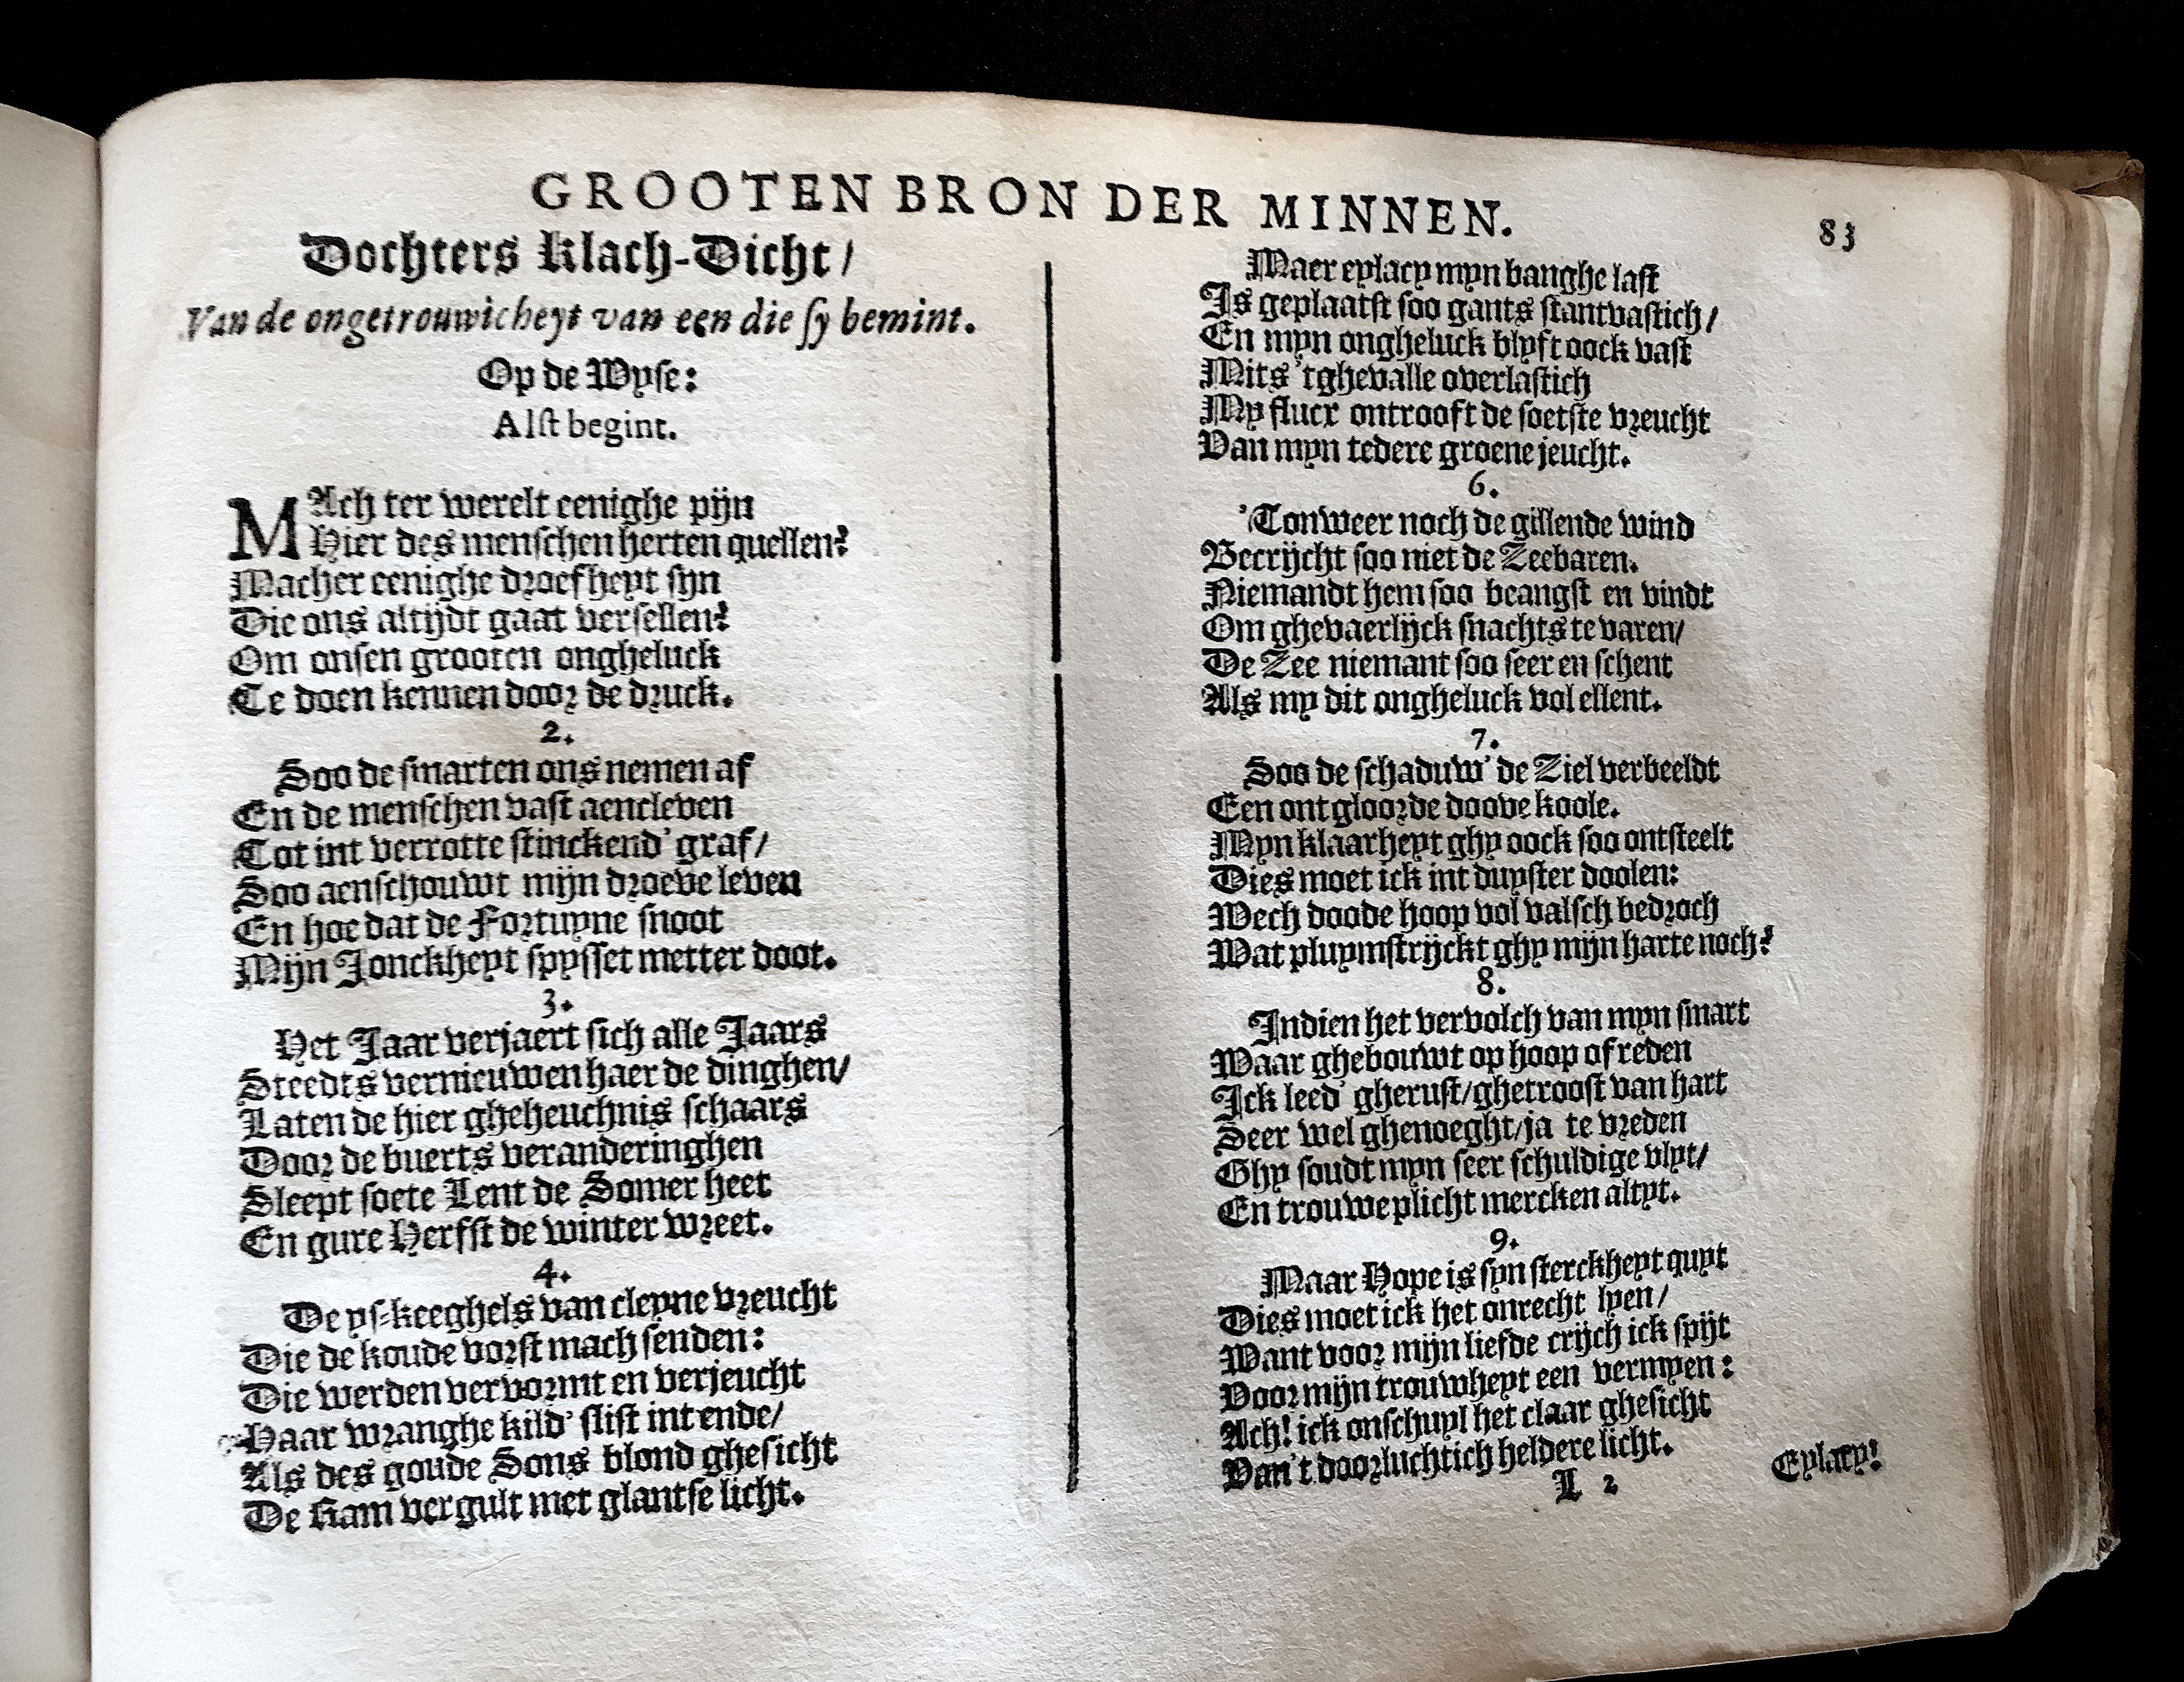 GROOTEN BRON DER MINNEN.
83
Dochters Klach-Dicht/
Van de ongetrouwicheyt van een die sy bemint.
Op de Wyse:
Alst begint.
MAch ter werelt eenighe pijn
Hier des menschen herten quellen?
Macher eenighe droefheyt syn
Die ons altijdt gaat versellen?
Om onsen grooten ongheluck
Te doen kennen door de druck.
2.
Soo de smarten ons nemen af
En de menschen vast aencleven
Tot int verrotte stinckend' graf/
Soo aenschouwt mijn droeve leven
En hoe dat de Fortuyne snoot
Mijn Jonckheyt spysset metter doot.
3.
Het Jaar verjaert sich alle Jaars
Steedts vernieuwen haer de dinghen/
Laten de hier gheheuchnis schaars
Door de buerts veranderinghen
Sleept soete Lent de Somer heet
En gure Herfst de winter wreet.
4.
De ys-keeghels van cleyne vreucht
Die de koude vorst mach senden:
Die werden vervormt en verjeucht
Haar wranghe kild' slist int ende/
Als des goude Sons blond ghesicht
De Ram vergult met glantse licht.
Maer eylacy myn banghe last
Is geplaatst soo gants stantvastich/
En myn ongheluck blyft oock vast
Mits 'tghevalle overlastich
My flucx ontrooft de soetste vreucht
Van myn tedere groene jeucht.
6.
'Tonweer noch de gillende wind
Becrijcht soo niet de Zeebaren.
Niemandt hem soo beangst en vindt
Om ghevaerlijck snachts te varen/
De Zee niemant soo seer en schent
Als my dit ongheluck vol ellent.
7.
Soo de schaduw' de Ziel verbeeldt
Een ontgloorde doove koole.
Myn klaarheyt ghy oock soo ontsteelt
Dies moet ick int duyster doolen:
Wech doode hoop vol valsch bedroch
Wat pluymstrijckt ghy mijn harte noch?
8.
Indien het vervolch van myn smart
Waar ghebouwt op hoop of reden
Ick leed' gherust/ghetroost van hart
Seer wel ghenoeght/ja te vreden
Ghy soudt myn seer schuldige vlyt/
En trouwe plicht mercken altyt.
9.
Maar Hope is syn sterckheyt quyt
Dies moet ick het onrecht lyen/
Want voor mijn liefde crijch ick spijt
Voor mijn trouwheyt een vermyen:
Ach! ick onschuyl het claar ghesicht
Van't doorluchtich heldere licht.
L 2
Eylacy!